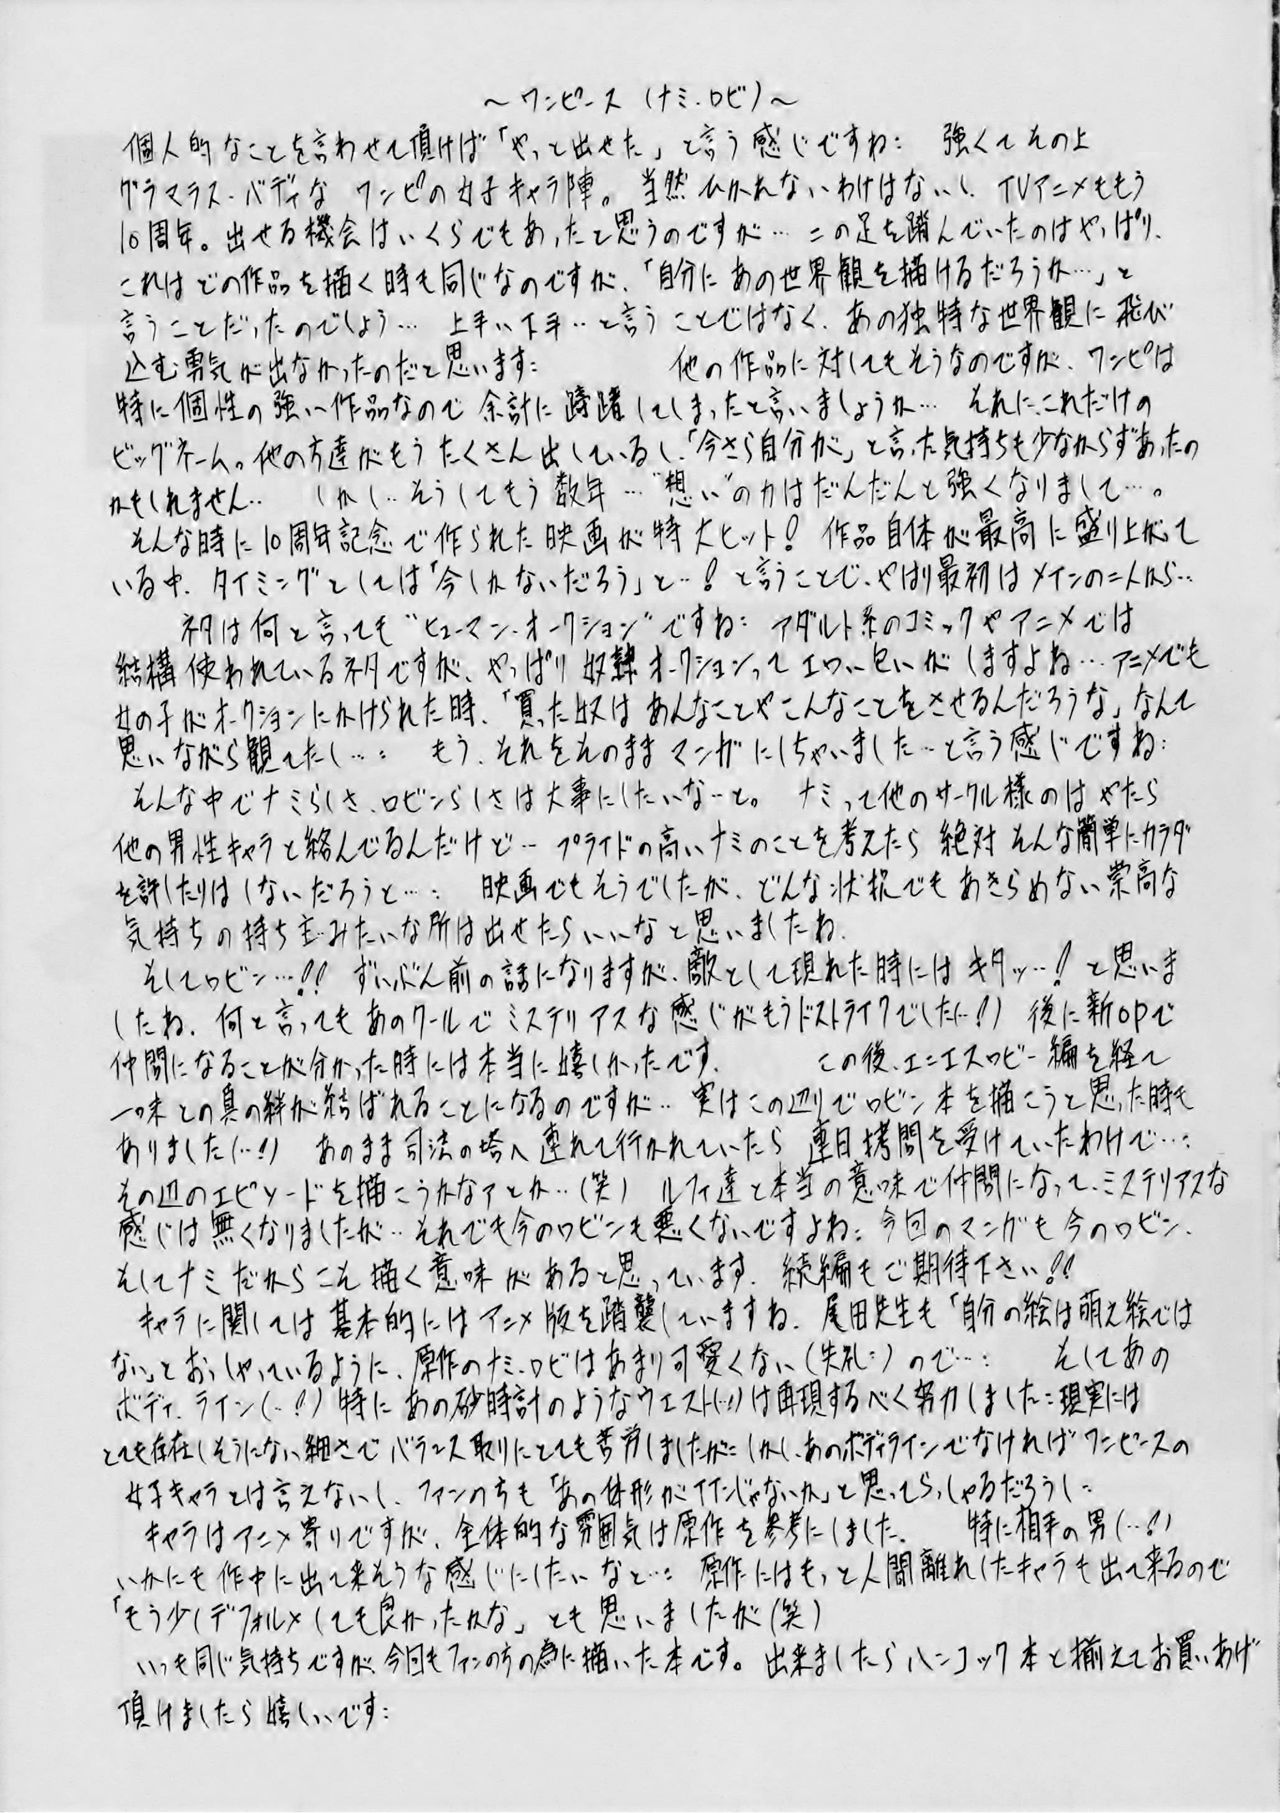 ～ワンピース（ナミ・ロビ）～
個人的なことを言わせて頂けば「やっと出せた」と言う感じですね: 強くてその上
グラマラス・バディな ワンピの女子キャラ陣。当然ひかれないわけはないし、TVアニメももう
10周年。出せる機会はいくらでもあったと思うのですが… 二の足を踏んでいたのはやっぱり、
これはどの作品を描く時も同じなのですが、「自分にあの世界観を描けるだろうか…」と
言うことだったのでしょう… 上手い下手‥と言うことではなく、あの独特な世界観に飛び
込む勇気が出なかったのだと思います: 他の作品に対してもそうなのですが、ワンピは
特に個性の強い作品なので余計に躊躇してしまったと言いましょうか… それに、これだけの
ビッグネーム。他の方達がもうたくさん出しているし、「今さら自分が」と言った気持ちも少なからずあったの
かもしれません‥ しかし‥そうしてもう数年…“想い”の力はだんだんと強くなりまして…。
そんな時に10周年記念で作られた映画が特大ヒット! 作品自体が最高に盛り上がって
いる中、タイミングとしては「今しかないだろう」と‥! と言うことで、やはり最初はメインの二人から‥
ネタは何と言っても“ヒューマン・オークション”ですね: アダルト系のコミックやアニメでは
結構使われているネタですが、やっぱり奴隷オークションってエロい匂いがしますよね…アニメでも
女の子がオークションにかけられた時、「買った奴はあんなことやこんなことをさせるんだろうな」なんて
思いながら観てたし…: もう、それをそのままマンガにしちゃいました…と言う感じですね:
そんな中でナミらしさ、ロビンらしさは大事にしたいなーと。 ナミって他のサークル様のはやたら
他の男性キャラと絡んでるんだけど… プライドの高いナミのことを考えたら絶対そんな簡単にカラダ
を許したりはしないだろうと…: 映画でもそうでしたが、どんな状況でもあきらめない崇高な
気持ちの持ち主みたいな所は出せたらいいなと思いましたね.
そしてロビン…!! ずいぶん前の話になりますが、敵として現れた時にはキタッ‥! と思いま
したね. 何と言ってもあのクールでミステリアスな感じがもうドストライクでした(‥!) 後に新OPで
仲間になることが分かった時には本当に嬉しかったです. この後、エニエスロビー編を経て
一味との真の絆が結ばれることになるのですが‥ 実はこの辺りでロビン本を描こうと思った時も
ありました(‥!) あのまま司法の塔へ連れて行かれていたら連日拷問を受けていたわけで…:
その辺のエピソードを描こうかなァとか‥(笑) ルフィ達と本当の意味で仲間になって、ミステリアスな
感じは無くなりましたが‥それでも今のロビンも悪くないですよね: 今回のマンガも今のロビン、
そしてナミだからこそ描く意味があると思っています. 続編もご期待下さい!!
キャラに関しては基本的にはアニメ版を踏襲していますね. 尾田先生も「自分の絵は萌え絵では
ない」とおっしゃっているように、原作のナミ・ロビはあまり可愛くない(失礼:)ので…: そしてあの
ボディ・ライン(‥!) 特にあの砂時計のようなウエスト(‥!)は再現するべく努力しました:現実には
とても存在しそうにない細さでバランス取りにとても苦労しましたが: しかし、あのボディラインでなければワンピースの
女子キャラとは言えないし、ファンの方も「あの体形がイイんじゃないか」と思ってらっしゃるだろうし:
キャラはアニメ寄りですが、全体的な雰囲気は原作を参考にしました. 特に相手の男(…!)
いかにも作中に出て来そうな感じにしたいなと…: 原作にはもっと人間離れしたキャラも出て来るので
「もう少しデフォルメしても良かったかな」とも思いましたが(笑)
いつも同じ気持ちですが、今回もファンの方の為に描いた本です。出来ましたらハンコック本と揃えてお買いあげ
頂けましたら嬉しいです: